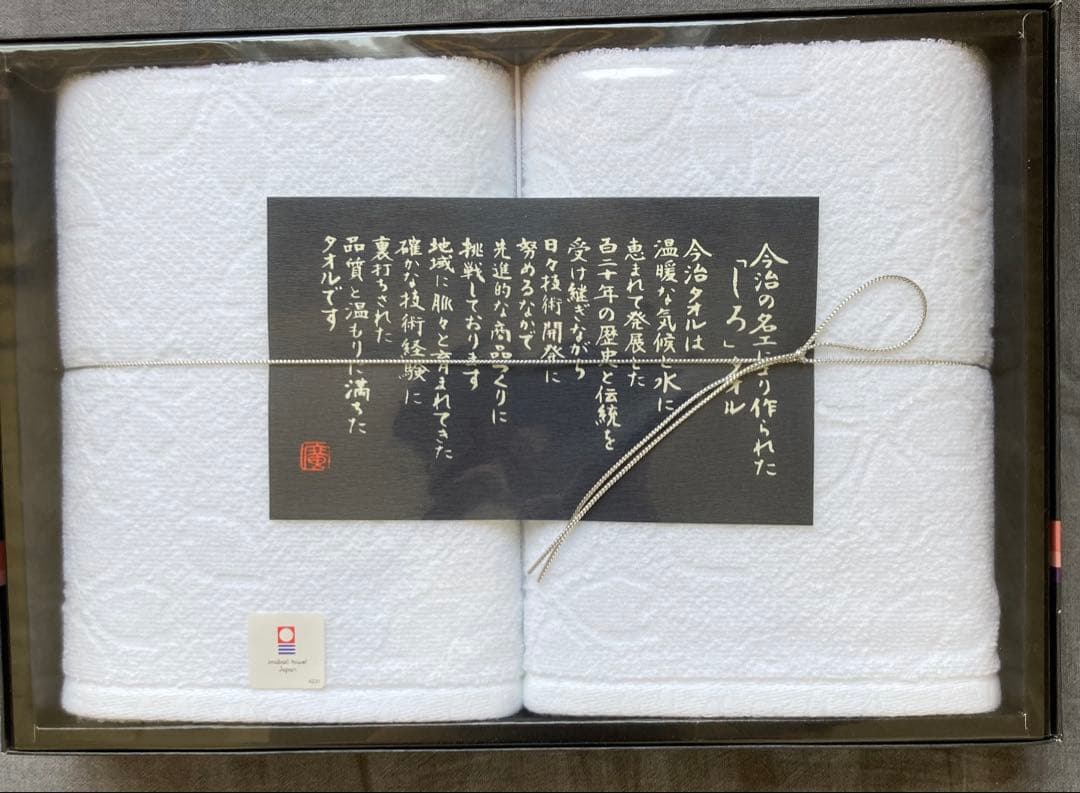 今治の名工により作られた
「しろ」タオル
今治タオルは
温暖な気候と水に
恵まれて発展した
百二十年の歴史と伝統を
受け継ぎながら
日々技術開発に
努めるなかで
先進的な商品づくりに
挑戦しております
地域に脈々と育まれてきた
確かな技術経験に
裏打ちされた
品質と温もりに満ちた
タオルです
imabari towel
Japan